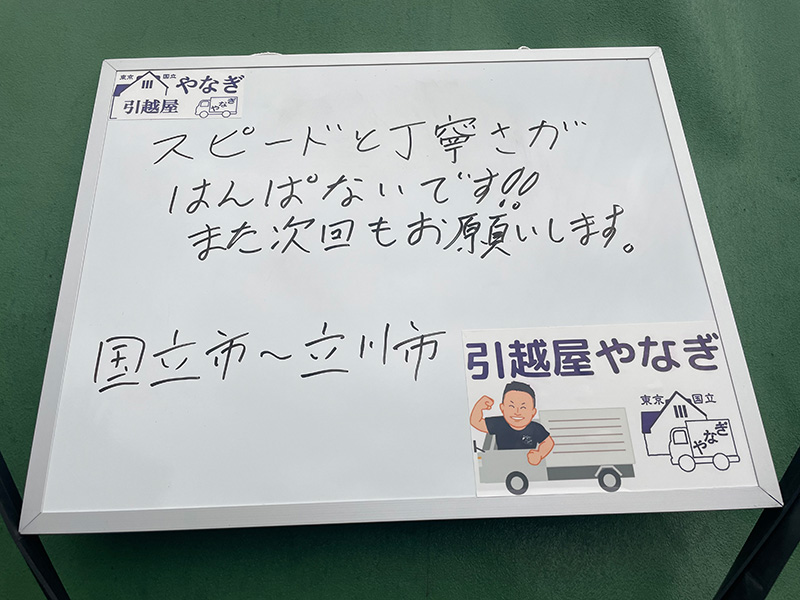 東京 国立 やなぎ
引越屋 やなぎ
スピードと丁寧さが
はんぱないです!!
また次回もお願いします。
国立市～立川市
引越屋やなぎ
東京 国立
やなぎ